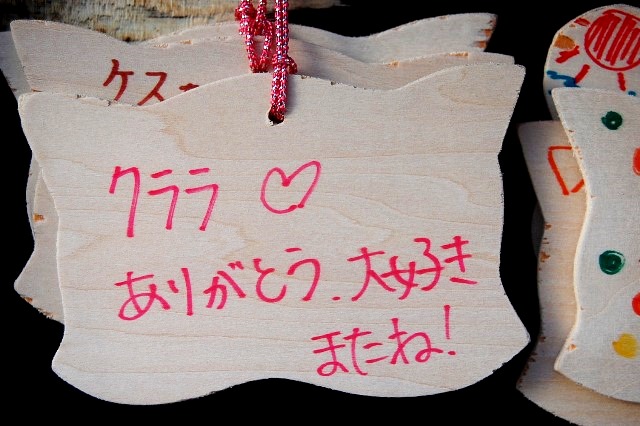 ケス
クララ ♡
ありがとう.大好き
またね!